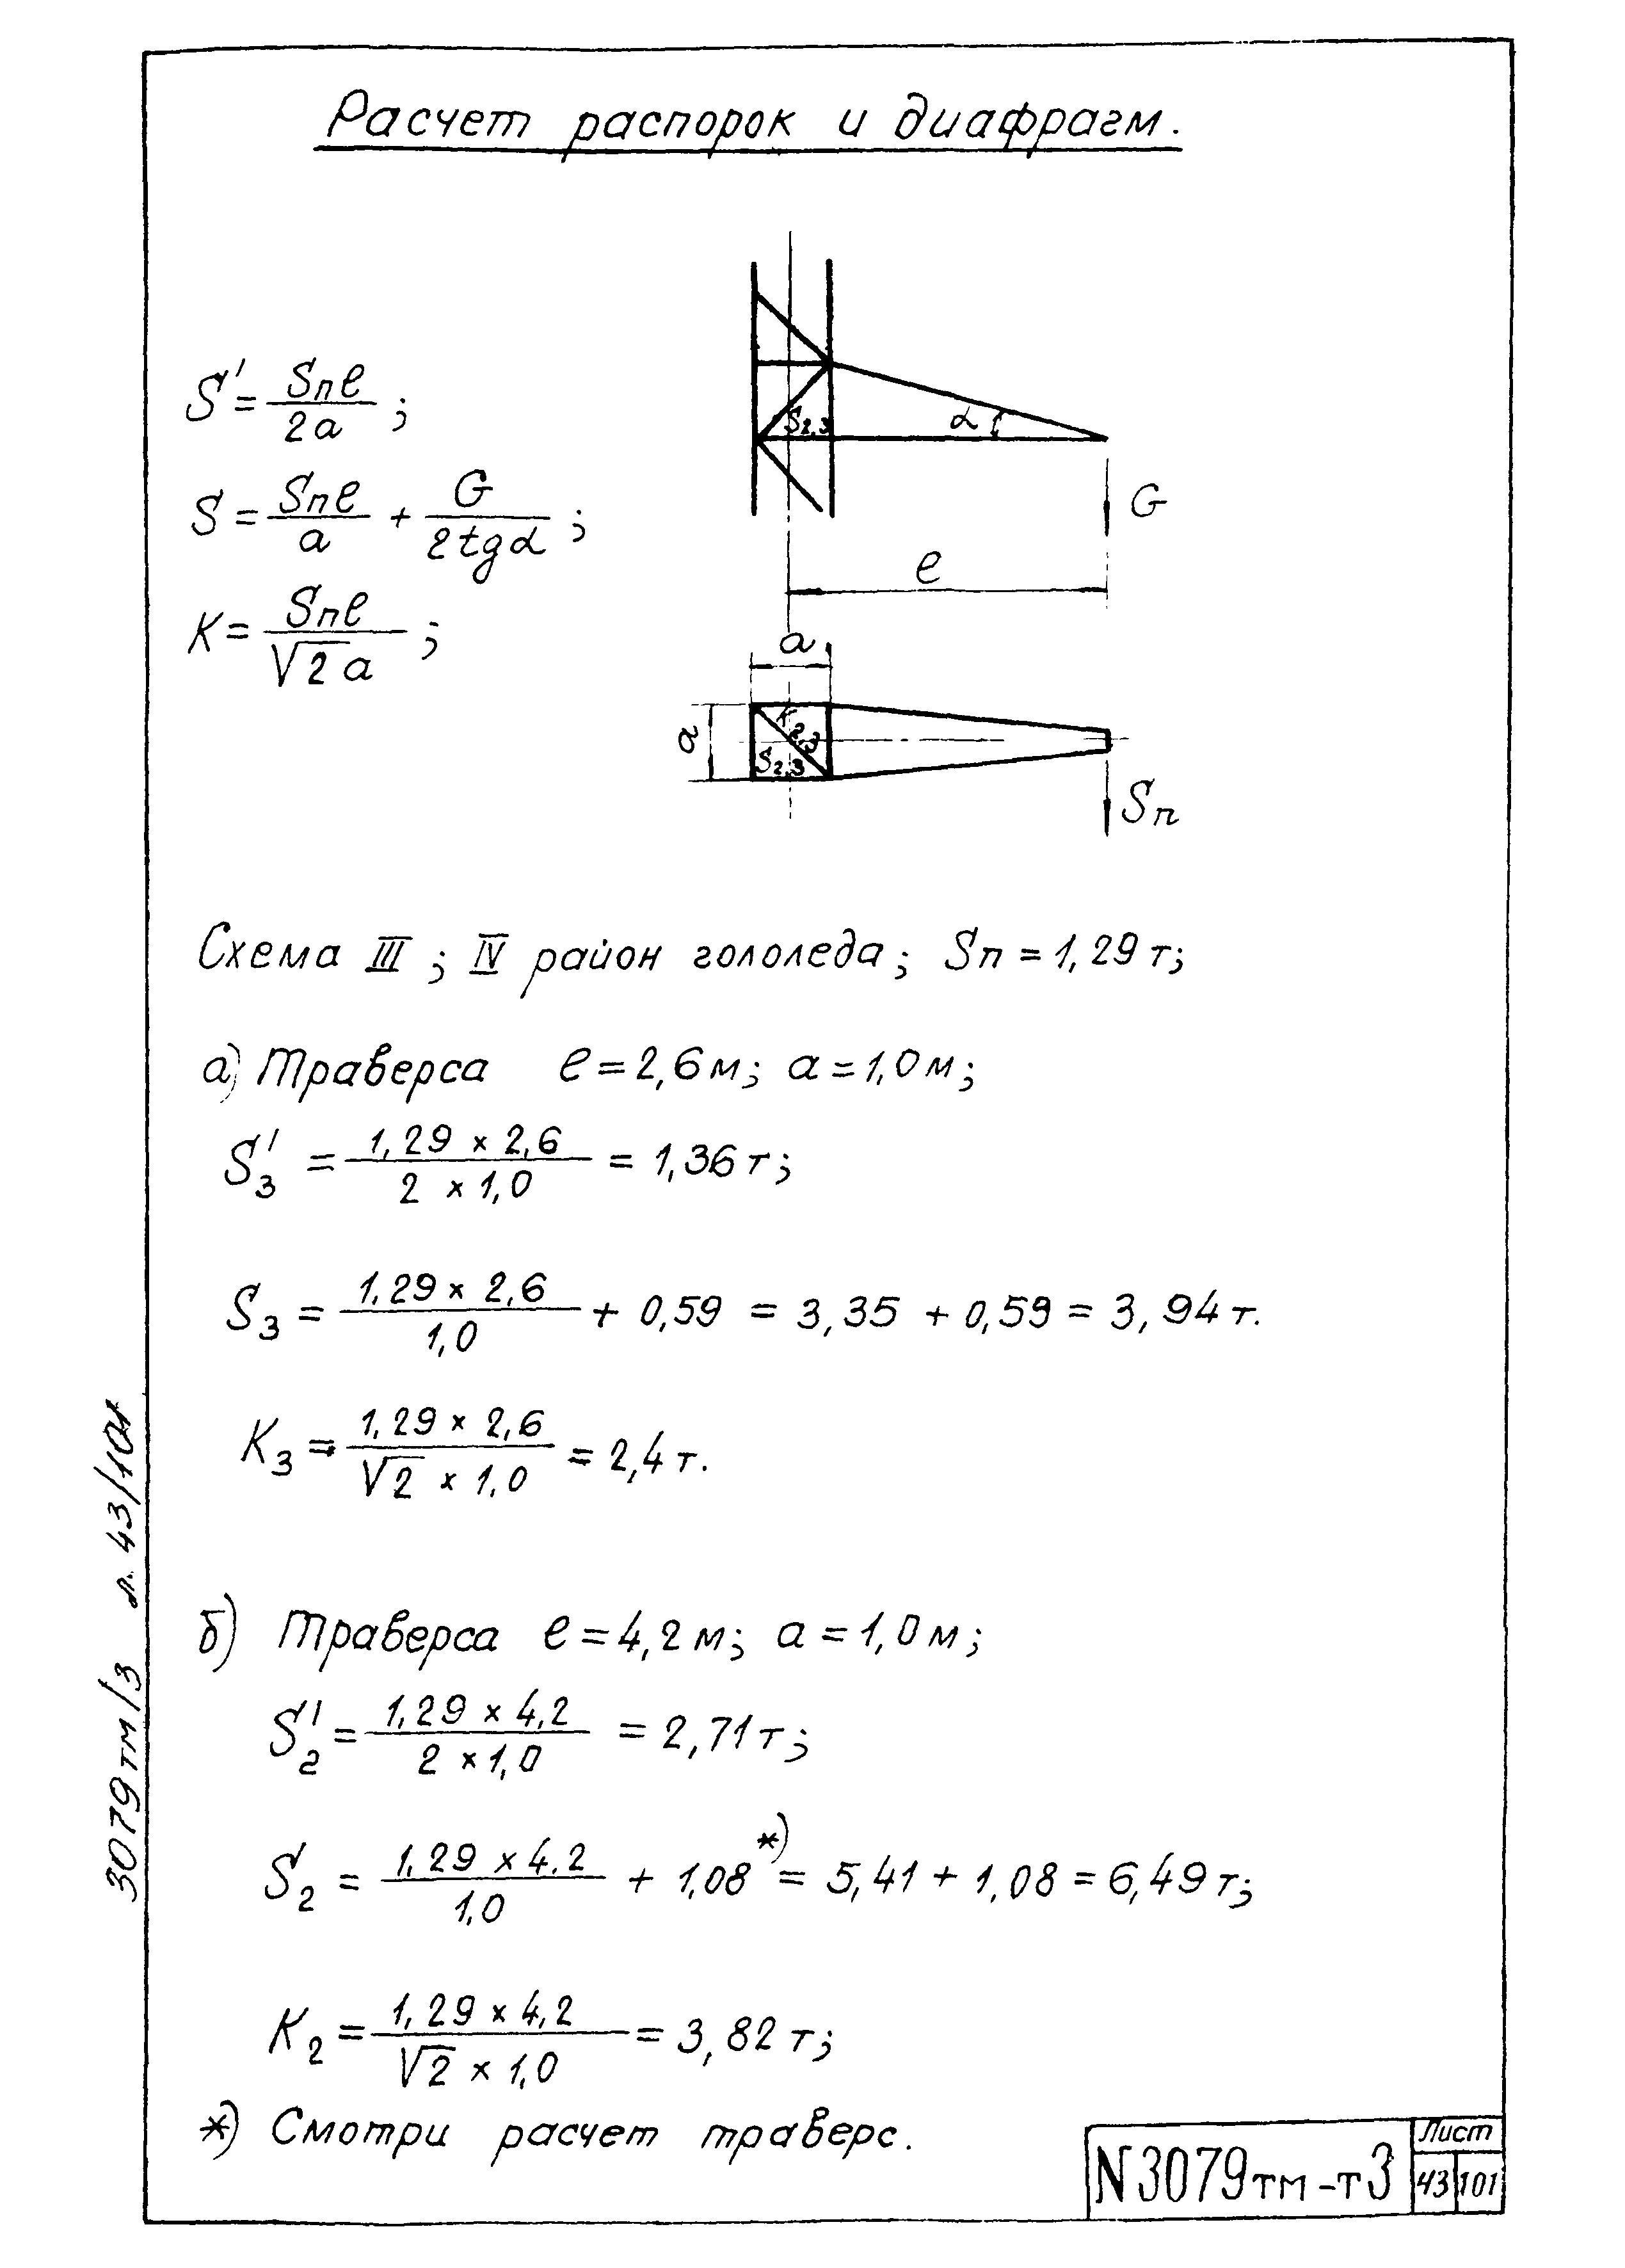 Расчет распорок и диафрагм.
S' = Sпℓ / 2a ;
S = Sпℓ / a + G / 2tgα ;
K = Sпℓ / √2 a ;
S2,3
α
G
ℓ
a
a
K2,3
S2,3
Sп
Схема III ; IV район гололеда ; Sп = 1,29 т;
а) Траверса ℓ = 2,6 м; a = 1,0 м;
S'3 = 1,29 × 2,6 / 2 × 1,0 = 1,36 т;
S3 = 1,29 × 2,6 / 1,0 + 0,59 = 3,35 + 0,59 = 3,94 т.
K3 = 1,29 × 2,6 / √2 × 1,0 = 2,4 т.
б) Траверса ℓ = 4,2 м; a = 1,0 м;
S'2 = 1,29 × 4,2 / 2 × 1,0 = 2,71 т;
S2 = 1,29 × 4,2 / 1,0 + 1,08 *) = 5,41 + 1,08 = 6,49 т;
K2 = 1,29 × 4,2 / √2 × 1,0 = 3,82 т;
*) Смотри расчет траверс.
N3079тм-т3
Лист
43 101
3079тм/3 л. 43/101